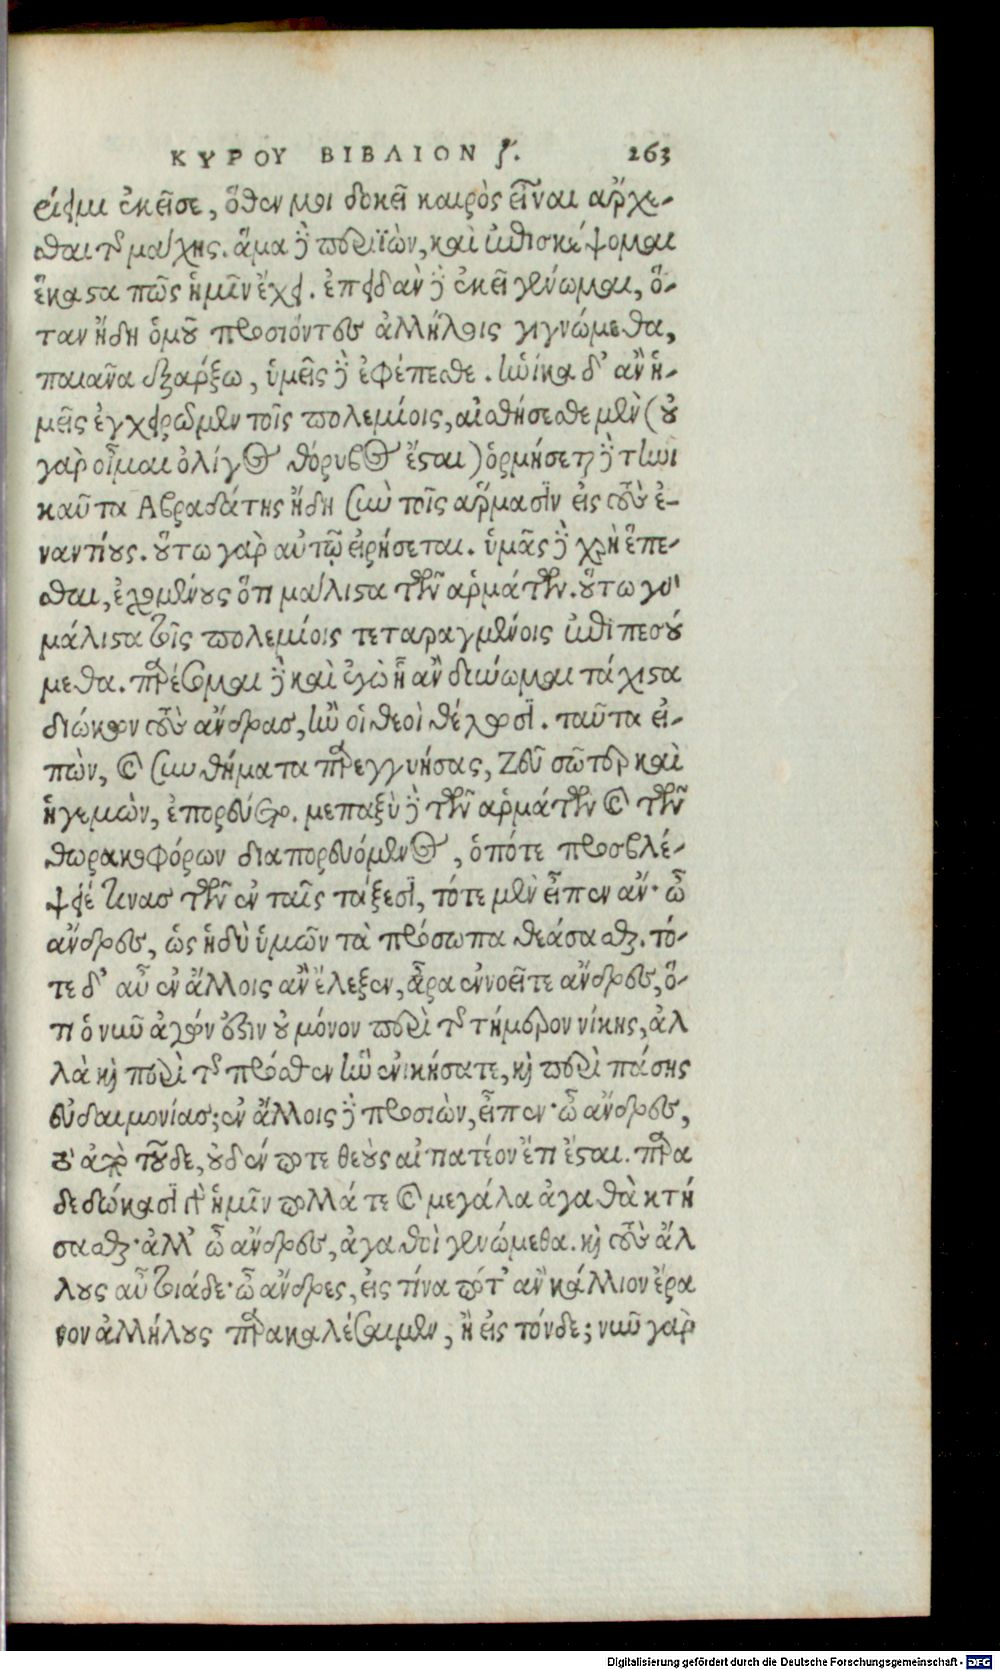 ΚΥΡΟΥ ΒΙΒΛΙΟΝ ζ. 263
εἴειμι ἐκεῖσε, ὅθεν μοι δοκεῖ καιρὸς εἶναι ἄρχε-
σθαι τῆς μάχης. ἅμα δὲ παριϊὼν, καὶ ἐπισκέψομαι
ἕκαστα πῶς ἡμῖν ἔχει. ἐπειδὰν δὲ ἐκεῖ γένωμαι, ὅ-
ταν ἤδη ὁμοῦ προσιόντες ἀλλήλοις γιγνώμεθα,
παιᾶνα ἐξάρξω, ὑμεῖς δὲ ἐφέπεσθε. ἡνίκα δ' ἂν ἡ-
μεῖς ἐγχειρῶμεν τοῖς πολεμίοις, αἰσθήσεσθε μὲν (οὐ
γὰρ οἶμαι ὀλίγος θόρυβος ἔσται) ὁρμήσεται δὲ τηνι
καῦτα Αβραδάτης ἤδη σὺν τοῖς ἅρμασιν εἰς τοὺς ἐ-
ναντίους. οὕτω γὰρ αὐτῷ εἰρήσεται. ὑμᾶς δὲ χρὴ ἕπε-
σθαι, ἐχομένους ὅτι μάλιστα τῶν ἁρμάτων. οὕτω γὰρ
μάλιστα τοῖς πολεμίοις τεταραγμένοις ἐπιπεσού
μεθα. παρέσομαι δὲ καὶ ἐγὼ ᾗ ἂν δύνωμαι τάχιστα
διώκων τοὺς ἄνδρας, ἢν οἱ θεοὶ θέλωσι. ταῦτα εἰ-
πὼν, καὶ συνθήματα παρεγγυήσας, Ζεῦ σῶτερ καὶ
ἡγεμὼν, ἐπορεύετο. μεταξὺ δὲ τῶν ἁρμάτων καὶ τῶν
θωρακοφόρων διαπορευόμενος, ὁπότε προσβλέ-
ψειέ τινας τῶν ἐν ταῖς τάξεσι, τότε μὲν εἶπεν ἄν· ὦ
ἄνδρες, ὡς ἡδὺ ὑμῶν τὰ πρόσωπα θεάσασθαι. τό-
τε δ' αὖ ἐν ἄλλοις ἂν ἔλεξεν, ἆρα ἐννοεῖτε ἄνδρες, ὅ-
τι ὁ νῦν ἀγών ἐστιν οὐ μόνον περὶ τῆς τήμερον νίκης, ἀλ
λὰ καὶ περὶ τῆς πρόσθεν ἣν ἐνικήσατε, καὶ περὶ πάσης
εὐδαιμονίας; ἐν ἄλλοις δὲ προσιὼν, εἶπεν· ὦ ἄνδρες,
τὸ ἀπὸ τοῦδε, οὐδέν ποτε θεοὺς αἰτιατέον ἔτι ἔσται. παρα
δεδώκασι γὰρ ἡμῖν πολλά τε καὶ μεγάλα ἀγαθὰ κτή
σασθαι· ἀλλ' ὦ ἄνδρες, ἀγαθοὶ γενώμεθα. καὶ τοὺς ἄλ
λους αὖ τοιάδε· ὦ ἄνδρες, εἰς τίνα πότ' ἂν κάλλιον ἔρα
νον ἀλλήλους παρακαλέσαιμεν, ἢ εἰς τόνδε; νῦν γὰρ
Digitalisierung gefördert durch die Deutsche Forschungsgemeinschaft - DFG